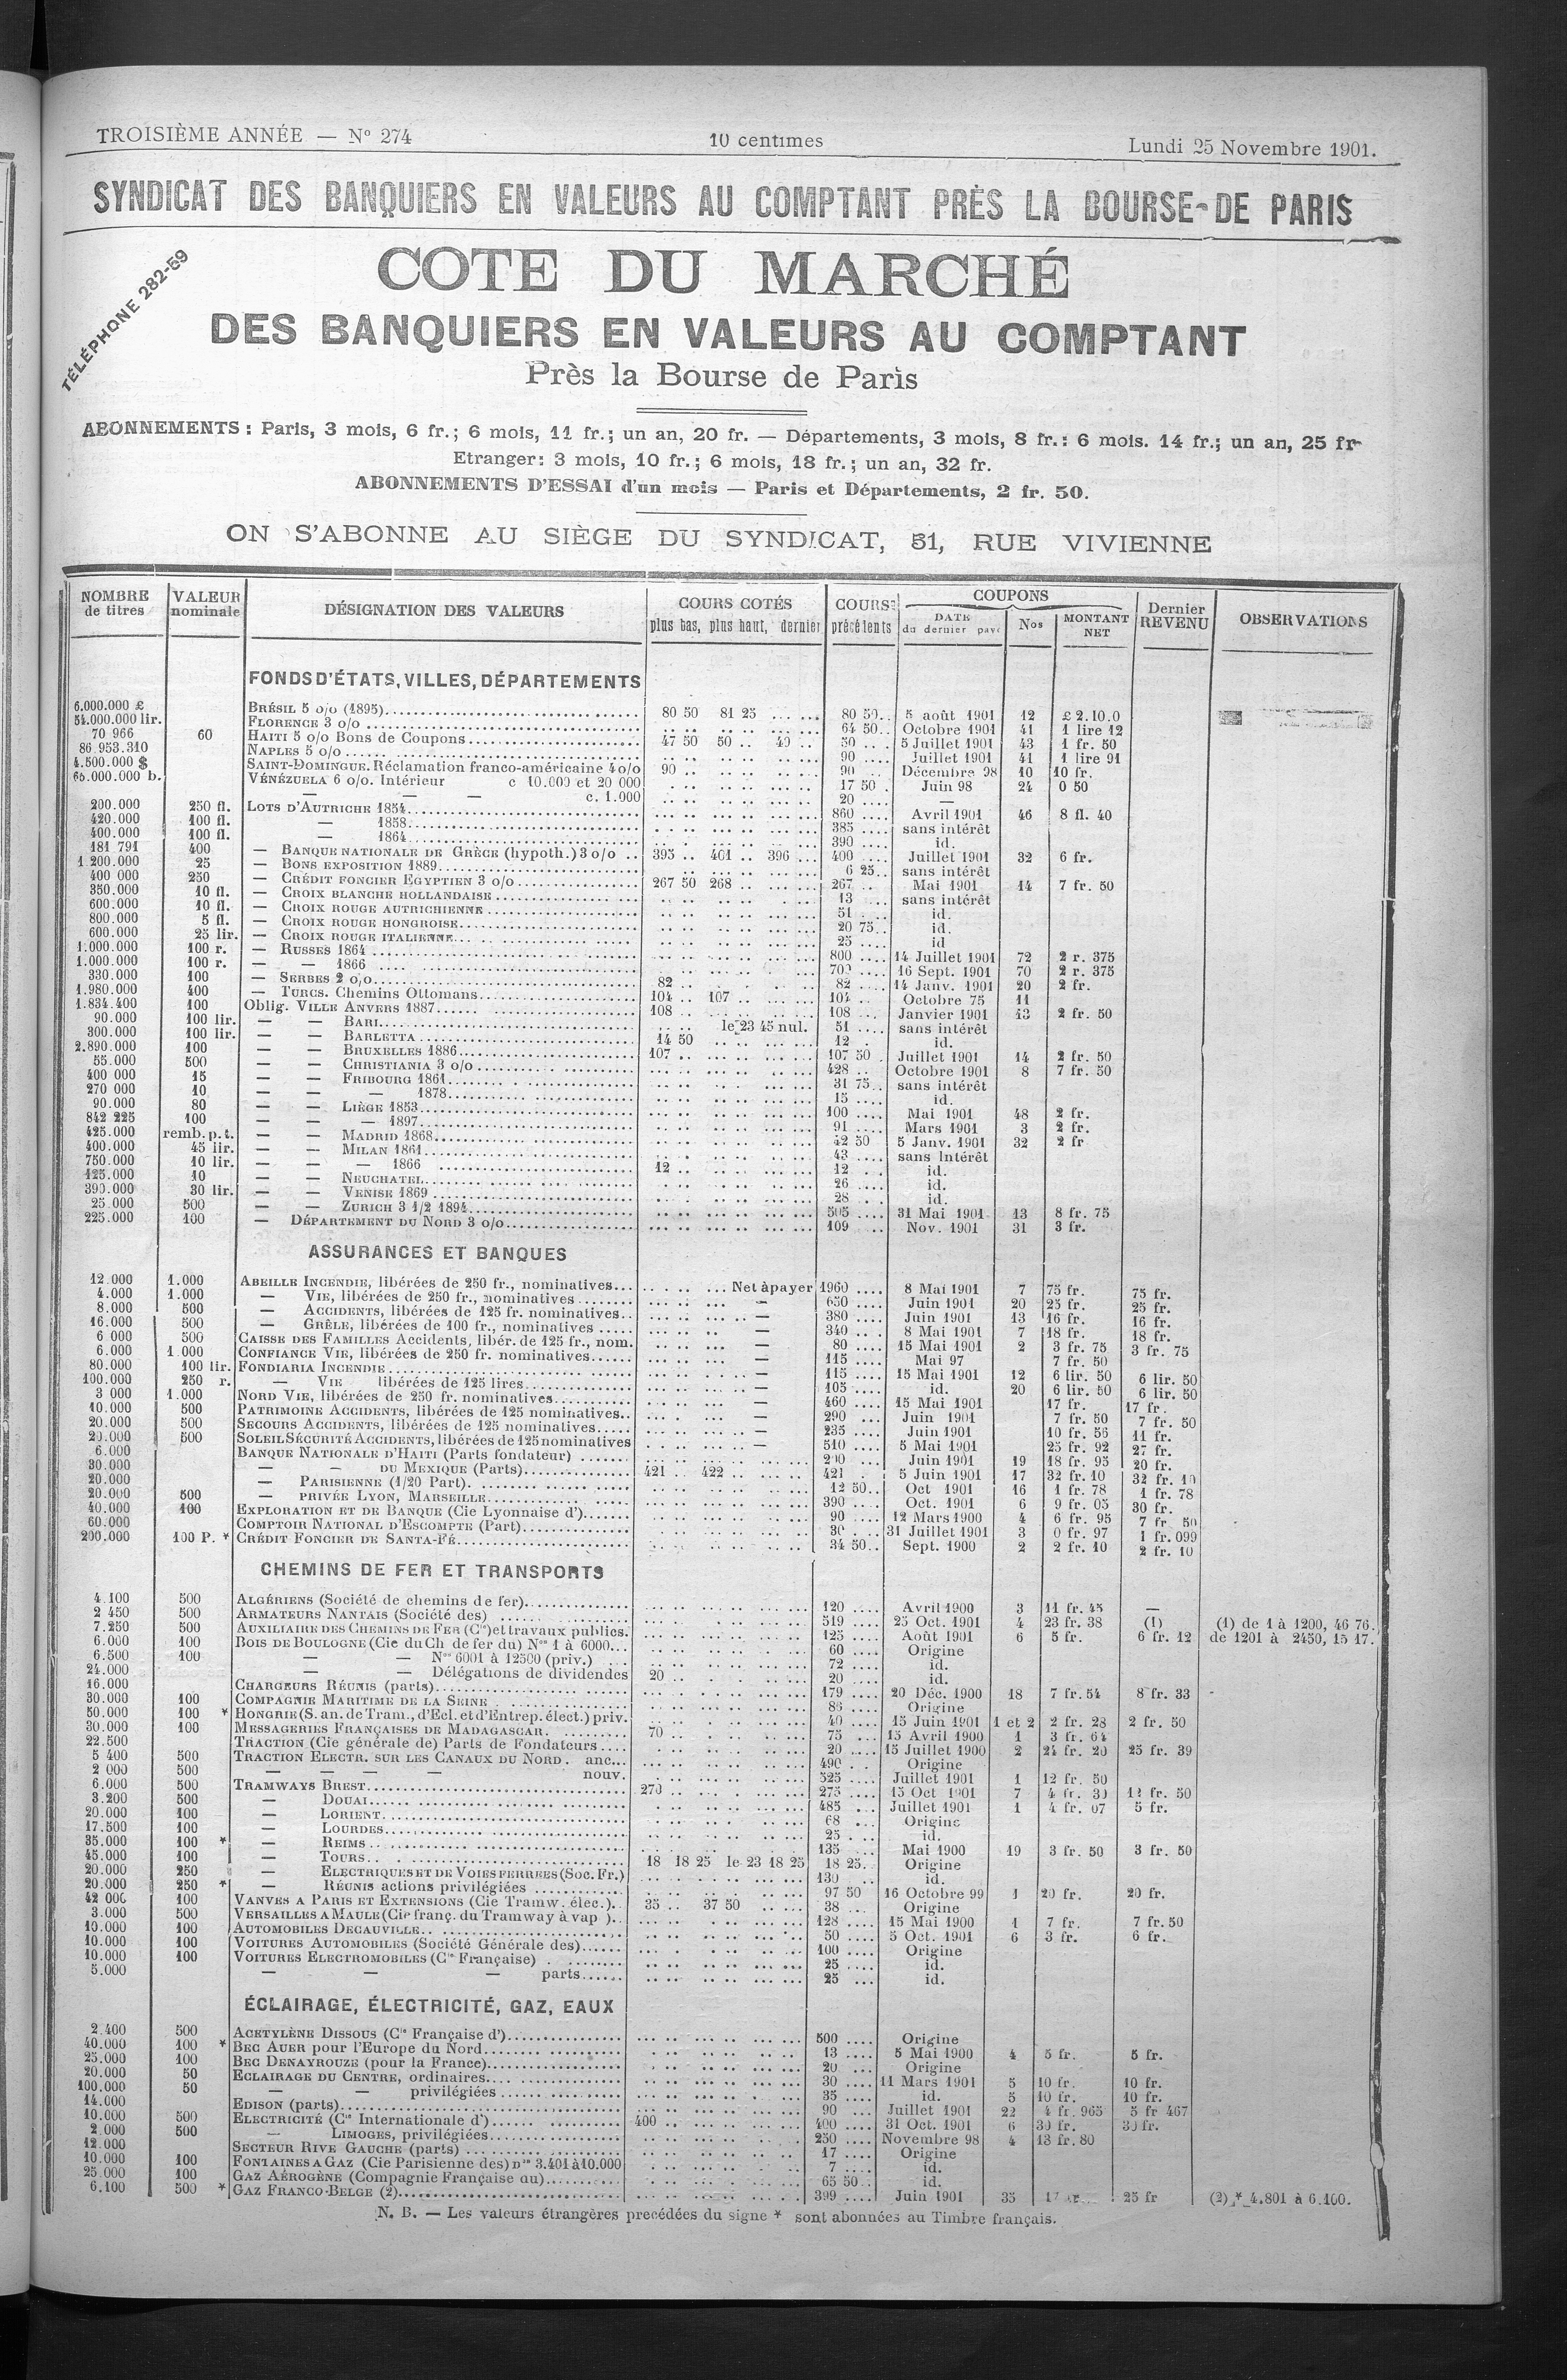 TROISIÈME ANNÉE — N° 274 10 centimes Lundi 25 Novembre 1901.
SYNDICAT DES BANQUIERS EN VALEURS AU COMPTANT PRÈS LA BOURSE DE PARIS
TÉLÉPHONE 282-59
COTE DU MARCHÉ
DES BANQUIERS EN VALEURS AU COMPTANT
Près la Bourse de Paris
ABONNEMENTS : Paris, 3 mois, 6 fr.; 6 mois, 11 fr.; un an, 20 fr. — Départements, 3 mois, 8 fr.: 6 mois. 14 fr.; un an, 25 fr
Etranger: 3 mois, 10 fr.; 6 mois, 18 fr.; un an, 32 fr.
ABONNEMENTS D'ESSAI d'un mois — Paris et Départements, 2 fr. 50.
ON S'ABONNE AU SIÈGE DU SYNDICAT, 51, RUE VIVIENNE
NOMBRE de titres | VALEUR nominale | DÉSIGNATION DES VALEURS | COURS COTÉS plus bas, plus haut, dernier | COURS précédents | COUPONS DATE du dernier payé | Nos | MONTANT NET | Dernier REVENU | OBSERVATIONS
FONDS D'ÉTATS, VILLES, DÉPARTEMENTS
6.000.000 £ BRÉSIL 5 o/o (1895) 80 50 81 25 80 50 5 août 1901 12 £ 2.10.0
54.000.000 lir. FLORENCE 3 o/o 64 50 Octobre 1901 41 1 lire 12
70 966 60 HAITI 5 o/o Bons de Coupons 47 50 50 49 50 5 Juillet 1901 43 1 fr. 50
86 953.310 NAPLES 5 o/o 90 Juillet 1901 41 1 lire 91
4.500.000 $ SAINT-DOMINGUE. Réclamation franco-américaine 4 o/o 90 90 Décembre 98 10 10 fr.
66.000.000 b. VÉNÉZUELA 6 o/o. Intérieur c 10.000 et 20 000 17 50 Juin 98 24 0 50
— — — c. 1.000 20 —
200.000 250 fl. LOTS D'AUTRICHE 1854 860 Avril 1901 46 8 fl. 40
420.000 100 fl. — 1858 385 sans intérêt
400.000 100 fl. — 1864 390 id.
181 791 400 — BANQUE NATIONALE DE GRÈCE (hypoth.) 3 o/o 395 401 396 400 Juillet 1901 32 6 fr.
1 200.000 25 — BONS EXPOSITION 1889 6 25 sans intérêt
400 000 250 — CRÉDIT FONCIER EGYPTIEN 3 o/o 267 50 268 267 Mai 1901 14 7 fr. 50
350.000 10 fl. — CROIX BLANCHE HOLLANDAISE 13 sans intérêt
600.000 10 fl. — CROIX ROUGE AUTRICHIENNE 51 id.
800.000 5 fl. — CROIX ROUGE HONGROISE 20 75 id.
600.000 25 lir. — CROIX ROUGE ITALIENNE 25 id
1.000.000 100 r. — RUSSES 1864 800 14 Juillet 1901 72 2 r. 375
1.000.000 100 r. — — 1866 16 Sept. 1901 70 2 r. 375
330.000 100 — SERBES 2 o/o 82 82 14 Janv. 1901 20 2 fr.
1.980.000 400 — TURCS. Chemins Ottomans 104 107 104 Octobre 75 11
1.834.400 100 Oblig. VILLE ANVERS 1887 108 108 Janvier 1901 13 2 fr. 50
90.000 100 lir. — — BARI le 23 45 nul. 51 sans intérêt
300.000 100 lir. — — BARLETTA 14 50 12 id.
2.890.000 100 — — BRUXELLES 1886 107 107 50 Juillet 1901 14 2 fr. 50
55.000 500 — — CHRISTIANIA 3 o/o 428 Octobre 1901 8 7 fr. 50
400 000 15 — — FRIBOURG 1861 31 75 sans intérêt
270 000 10 — — — 1878 15 id.
90.000 80 — — LIÈGE 1853 100 Mai 1901 48 2 fr.
842 225 100 — — — 1897 91 Mars 1901 3 2 fr.
425.000 remb. p. t. — — MADRID 1868 42 50 5 Janv. 1901 32 2 fr
400.000 45 lir. — — MILAN 1861 43 sans intérêt
750.000 10 lir. — — — 1866 12 12 id.
125.000 10 — — NEUCHATEL 26 id.
390.000 30 lir. — — VENISE 1869 28 id.
25.000 500 — — ZURICH 3 1/2 1894 505 31 Mai 1901 13 8 fr. 75
225.000 100 — DÉPARTEMENT DU NORD 3 o/o 109 Nov. 1901 31 3 fr.
ASSURANCES ET BANQUES
12.000 1.000 ABEILLE INCENDIE, libérées de 250 fr., nominatives Net à payer 1960 8 Mai 1901 7 75 fr. 75 fr.
4.000 1.000 — VIE, libérées de 250 fr., nominatives — 650 Juin 1901 20 25 fr. 25 fr.
8.000 500 — ACCIDENTS, libérées de 125 fr. nominatives — 380 Juin 1901 13 16 fr. 16 fr.
16.000 500 — GRÊLE, libérées de 100 fr., nominatives — 340 8 Mai 1901 7 18 fr. 18 fr.
6 000 500 CAISSE DES FAMILLES Accidents, libér. de 125 fr., nom. — 80 15 Mai 1901 2 3 fr. 75 3 fr. 75
6.000 1 000 CONFIANCE VIE, libérées de 250 fr. nominatives — 115 Mai 97 7 fr. 50
80.000 100 lir. FONDIARIA INCENDIE — 115 15 Mai 1901 12 6 lir. 50 6 lir. 50
100.000 250 r. — VIE libérées de 125 lires — 105 id. 20 6 lir. 50 6 lir. 50
3 000 1.000 NORD VIE, libérées de 250 fr. nominatives — 460 15 Mai 1901 17 fr. 17 fr.
10.000 500 PATRIMOINE ACCIDENTS, libérées de 125 nominatives — 290 Juin 1901 7 fr. 50 7 fr. 50
20.000 500 SECOURS ACCIDENTS, libérées de 125 nominatives — 235 Juin 1901 10 fr. 56 11 fr.
20.000 500 SOLEIL SÉCURITÉ ACCIDENTS, libérées de 125 nominatives — 510 5 Mai 1901 25 fr. 92 27 fr.
6.000 BANQUE NATIONALE D'HAITI (Parts fondateur) Juin 1901 19 18 fr. 95 20 fr.
30.000 — — DU MEXIQUE (Parts) 421 422 421 5 Juin 1901 17 32 fr. 10 32 fr. 10
20.000 — PARISIENNE (1/20 Part). 12 50 Oct 1901 16 1 fr. 78 1 fr. 78
20.000 500 — PRIVÉE LYON, MARSEILLE 390 Oct. 1901 6 9 fr. 05 30 fr.
40.000 100 EXPLORATION ET DE BANQUE (Cie Lyonnaise d') 90 12 Mars 1900 4 6 fr. 95 7 fr 50
60.000 COMPTOIR NATIONAL D'ESCOMPTE (Part) 30 31 Juillet 1901 3 0 fr. 97 1 fr. 099
200.000 100 P. * CRÉDIT FONCIER DE SANTA-FÉ 34 50 Sept. 1900 2 2 fr. 10 2 fr. 10
CHEMINS DE FER ET TRANSPORTS
4.100 500 ALGÉRIENS (Société de chemins de fer) 120 Avril 1900 3 11 fr. 45 —
2 450 500 ARMATEURS NANTAIS (Société des) 519 25 Oct. 1901 4 23 fr. 38 (1) (1) de 1 à 1200, 46 76.
7.250 500 AUXILIAIRE DES CHEMINS DE FER (Cie) et travaux publics. 125 Août 1901 6 5 fr. 6 fr. 12 de 1201 à 2450, 15 17.
6.000 100 BOIS DE BOULOGNE (Cie du Ch de fer du) Nos 1 à 6000 60 Origine
6.500 100 — — Nos 6001 à 12500 (priv.) 72 id.
24.000 — — Délégations de dividendes 20 20 id.
16.000 CHARGEURS RÉUNIS (parts) 179 20 Déc. 1900 18 7 fr. 54 8 fr. 33
30.000 100 COMPAGNIE MARITIME DE LA SEINE Origine
50.000 100 * HONGRIE (S. an. de Tram., d'Ecl. et d'Entrep. élect.) priv. 40 15 Juin 1901 1 et 2 2 fr. 28 2 fr. 50
30.000 100 MESSAGERIES FRANÇAISES DE MADAGASCAR. 70 75 15 Avril 1900 1 3 fr. 64
22.500 TRACTION (Cie générale de) Parts de Fondateurs 20 15 Juillet 1900 2 24 fr. 20 25 fr. 39
5 400 500 TRACTION ELECTR. SUR LES CANAUX DU NORD. anc. 490 Origine
2 000 500 — — — — nouv. 525 Juillet 1901 1 12 fr. 50
6.000 500 TRAMWAYS BREST 270 275 15 Oct 1901 7 4 fr. 39 12 fr. 50
3.200 500 — DOUAI 485 Juillet 1901 1 4 fr. 07 5 fr.
20.000 100 — LORIENT 68 Origine
17.500 100 — LOURDES 25 id.
35.000 100 * — REIMS 135 Mai 1900 19 3 fr. 50 3 fr. 50
45.000 100 — TOURS 18 18 25 le 23 18 25 18 25 Origine
20.000 250 — ELECTRIQUES ET DE VOIES FERREES (Soc. Fr.) 130 id.
20.000 250 * — RÉUNIS actions privilégiées 97 50 16 Octobre 99 1 20 fr. 20 fr.
42 000 100 VANVES A PARIS ET EXTENSIONS (Cie Tramw. élec.) 35 37 50 38 Origine
3.000 500 VERSAILLES A MAULE (Cie franç. du Tramway à vap ) 128 15 Mai 1900 1 7 fr. 7 fr. 50
10.000 100 AUTOMOBILES DECAUVILLE 50 5 Oct. 1901 6 3 fr. 6 fr.
10.000 100 VOITURES AUTOMOBILES (Société Générale des) 100 Origine
10.000 100 VOITURES ELECTROMOBILES (Cie Française) 25 id.
5.000 — — — parts 25 id.
ÉCLAIRAGE, ÉLECTRICITÉ, GAZ, EAUX
2.400 500 ACETYLÈNE DISSOUS (Cie Française d') 500 Origine
40.000 100 * BEC AUER pour l'Europe du Nord 13 5 Mai 1900 4 5 fr. 5 fr.
25.000 100 BEC DENAYROUZE (pour la France) 20 Origine
20.000 50 ECLAIRAGE DU CENTRE, ordinaires 30 11 Mars 1901 5 10 fr. 10 fr.
100.000 50 — — privilégiées 35 id. 5 10 fr. 10 fr.
14.000 EDISON (parts) 90 Juillet 1901 22 4 fr. 965 5 fr 467
10.000 500 ELECTRICITÉ (Cie Internationale d') 400 400 31 Oct. 1901 6 30 fr. 30 fr.
2.000 500 — LIMOGES, privilégiées 250 Novembre 98 4 13 fr. 80
12.000 SECTEUR RIVE GAUCHE (parts) 17 Origine
10.000 100 FONTAINES A GAZ (Cie Parisienne des) nos 3.401 à 10.000 7 id.
25.000 100 GAZ AÉROGÈNE (Compagnie Française du) 65 50 id.
6.100 500 * GAZ FRANCO-BELGE (2) 399 Juin 1901 35 25 fr (2) * 4.801 à 6.100.
N. B. — Les valeurs étrangères precédées du signe * sont abonnées au Timbre français.